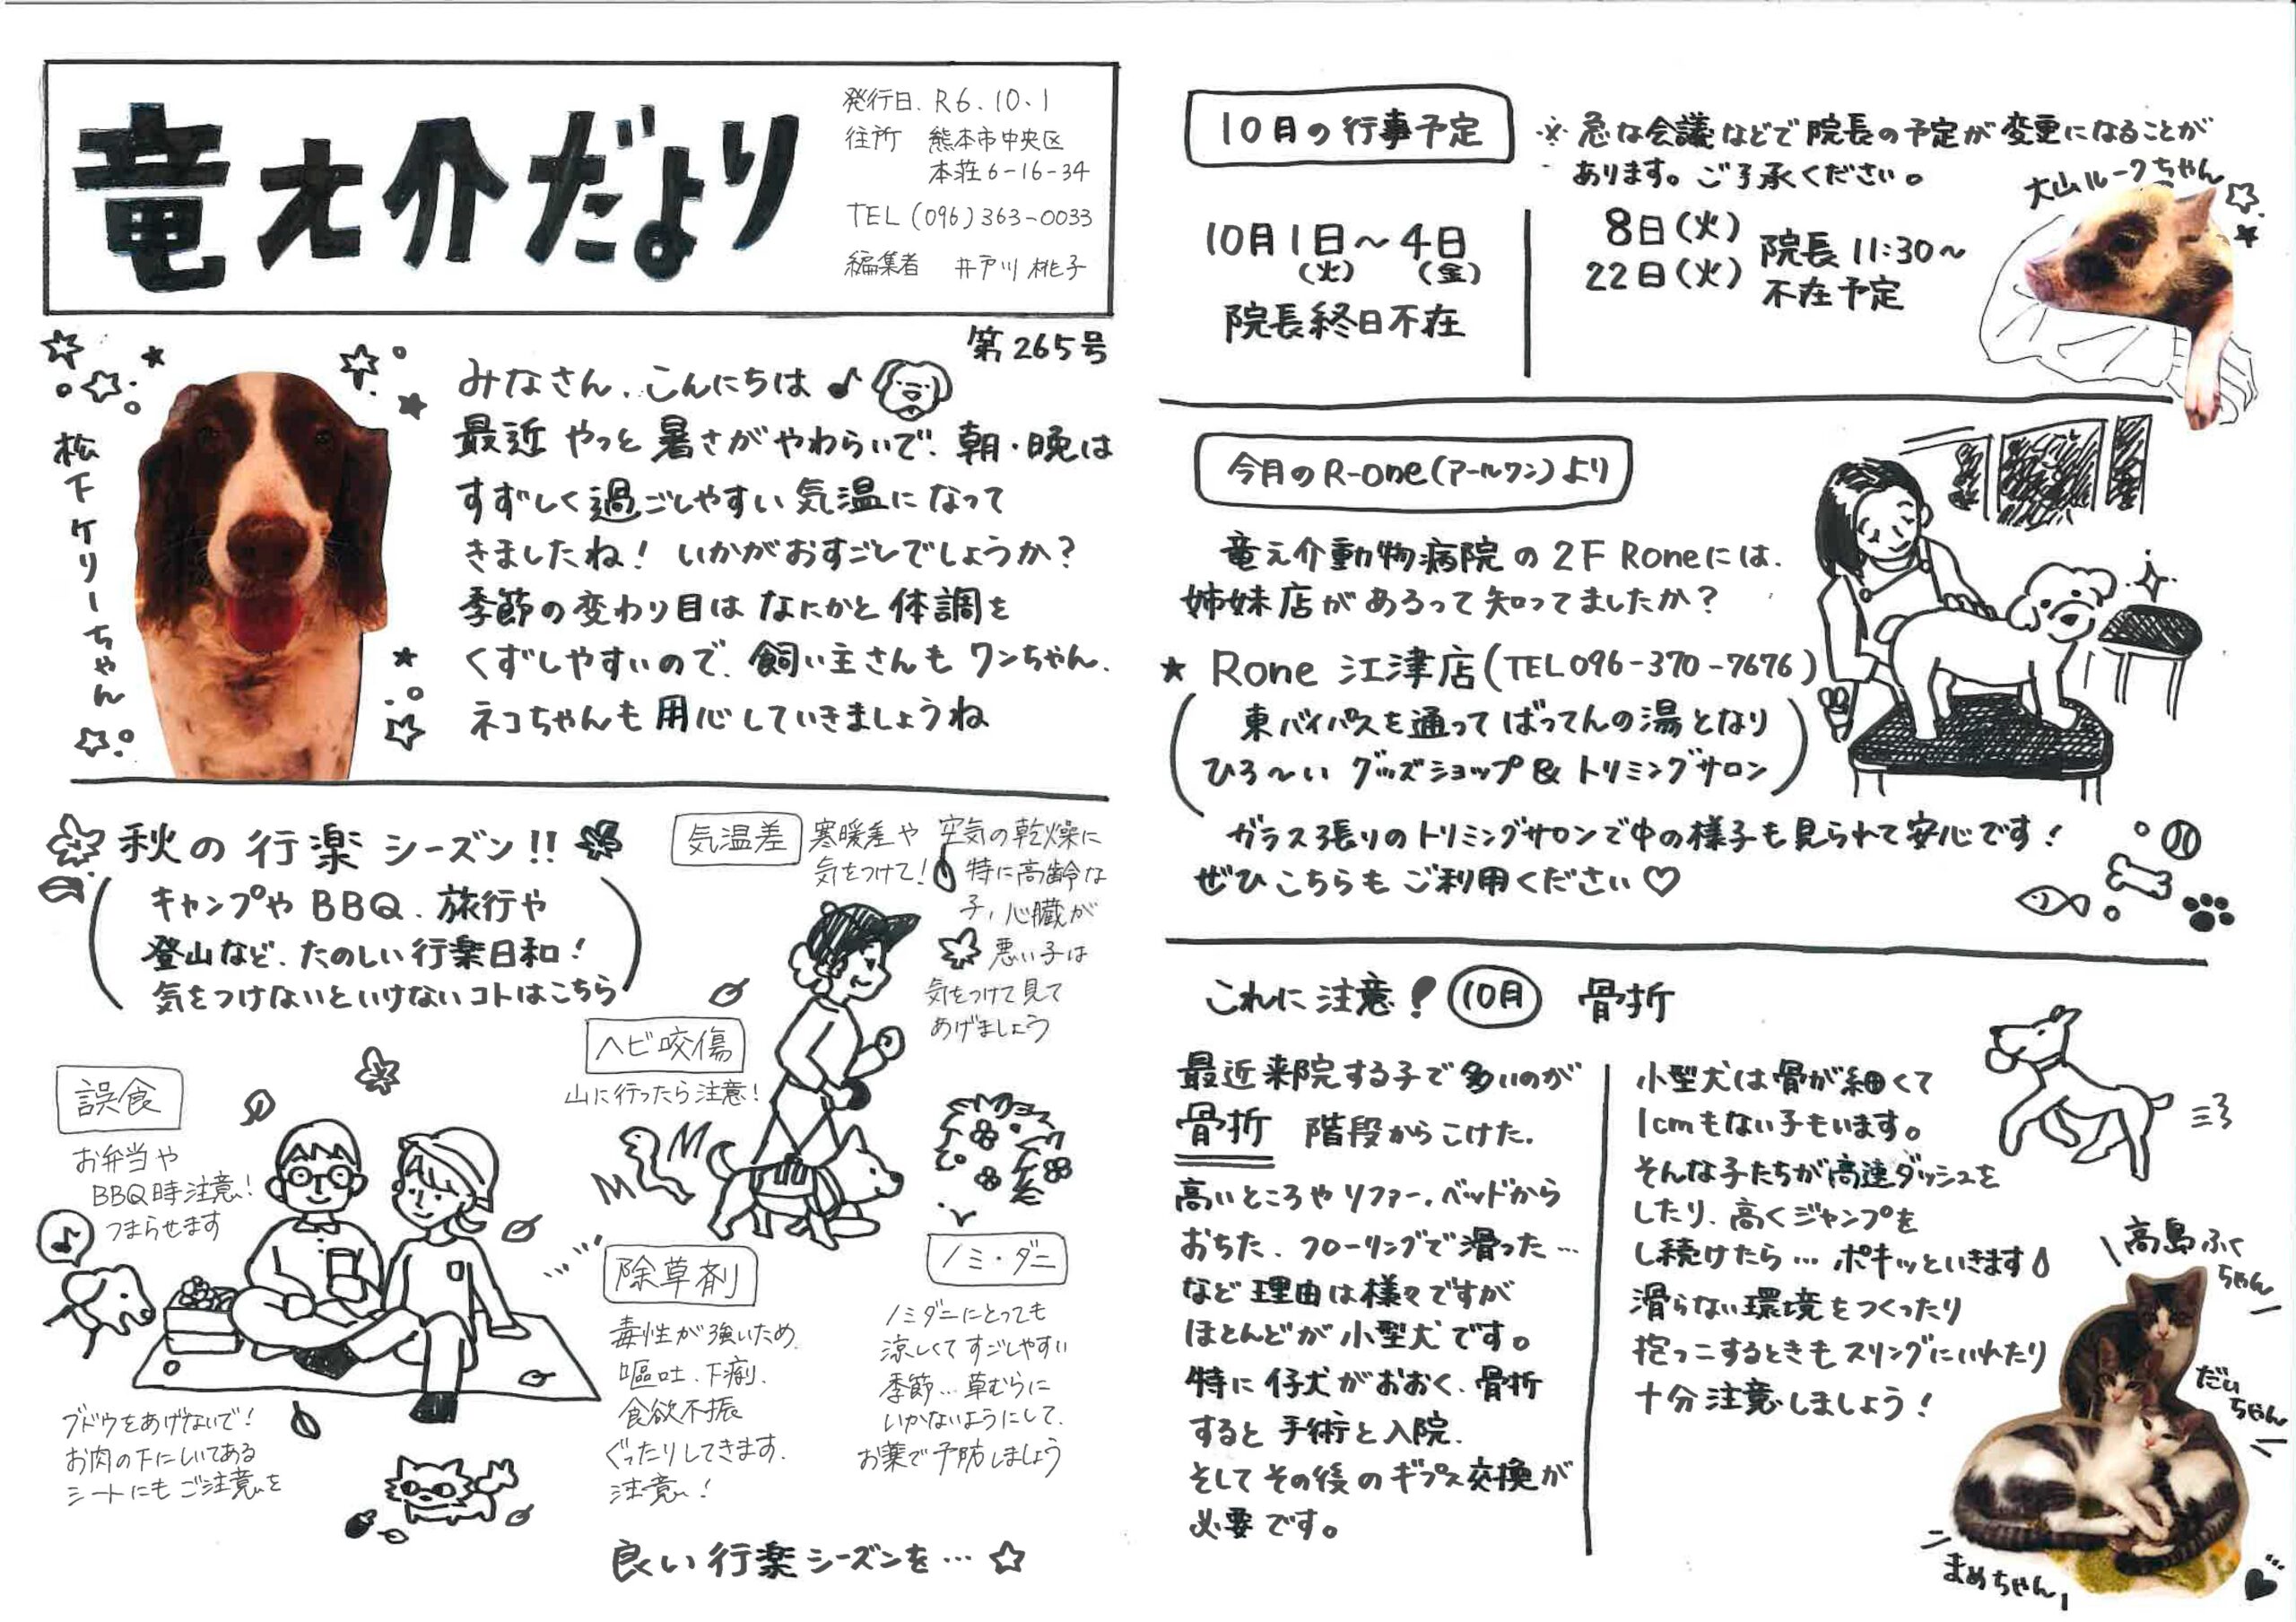 竜之介だより
発行日. R6.10.1
住所 熊本市中央区
本荘6-16-34
TEL (096) 363-0033
編集者 井戸川 桃子
第265号
松下ケリーちゃん
みなさん、こんにちは♪
最近 やっと 暑さが やわらいで、朝・晩は
すずしく 過ごしやすい 気温に なって
きましたね! いかがおすごしでしょうか?
季節の変わり目は なにかと 体調を
くずしやすいので、飼い主さんも ワンちゃん、
ネコちゃんも 用心していきましょうね
秋の 行楽 シーズン!!
キャンプや BBQ、旅行や
登山など、たのしい 行楽日和!
気をつけないといけないコトはこちら
気温差
寒暖差や 空気の乾燥に
気をつけて! 特に高齢な
子、心臓が
悪い子は
気をつけて見て
あげましょう
ヘビ咬傷
山に行ったら注意!
誤食
お弁当や
BBQ時注意!
つまらせます
ブドウをあげないで!
お肉の下にしいてある
シートにもご注意を
除草剤
毒性が強いため
嘔吐、下痢、
食欲不振
ぐったりしてきます。
注意!
ノミ・ダニ
ノミダニにとっても
涼しくてすごしやすい
季節… 草むらに
いかないようにして、
お薬で予防しましょう
良い 行楽 シーズンを…☆
10月の行事予定
※ 急な会議などで 院長の予定が 変更になることが
あります。ご了承ください。
大山ルークちゃん
10月1日~4日
(火) (金)
院長終日不在
8日(火)
22日(火)
院長 11:30~
不在予定
今月のR-one(アールワン)より
竜之介動物病院 の 2F Roneには、
姉妹店が あるって 知ってましたか?
★ Rone 江津店(TEL096-370-7676)
東バイパスを通って ばってんの湯 となり
ひろ~い グッズショップ & トリミングサロン
ガラス張りのトリミングサロンで中の様子も見られて安心です!
ぜひこちらも ご利用ください♡
これに注意! 10月 骨折
最近 来院する子で 多いのが
骨折 階段からこけた、
高いところや ソファー、ベッドから
おちた、フローリングで滑った…
など 理由は様々ですが
ほとんどが 小型犬です。
特に 仔犬がおおく、骨折
すると 手術と入院、
そして その後 の ギプス交換が
必要です。
小型犬は骨が細くて
1cmもない子もいます。
そんな子たちが高速ダッシュを
したり、高くジャンプを
し続けたら… ポキッといきます
滑らない環境をつくったり
抱っこするときもスリングにいれたり
十分注意しましょう!
高島ふくちゃん
だいちゃん
まめちゃん